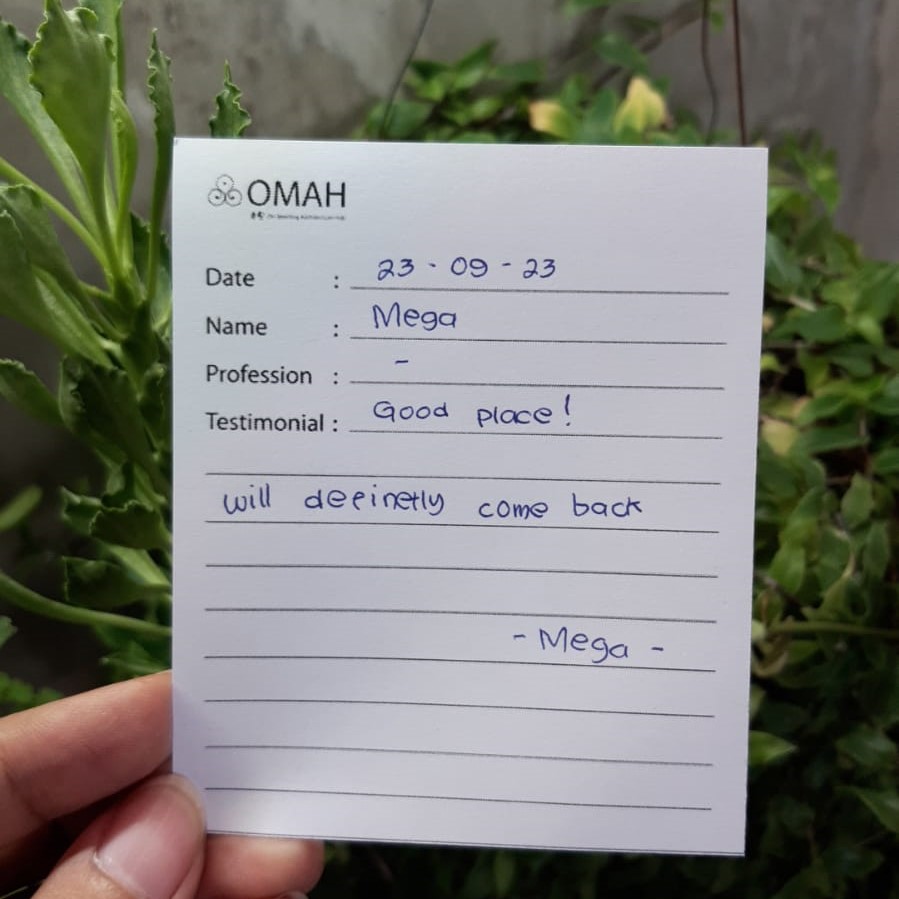 OMAH
Date : 23 - 09 - 23
Name : Mega
Profession : -
Testimonial : Good place!
will definetly come back
- Mega -